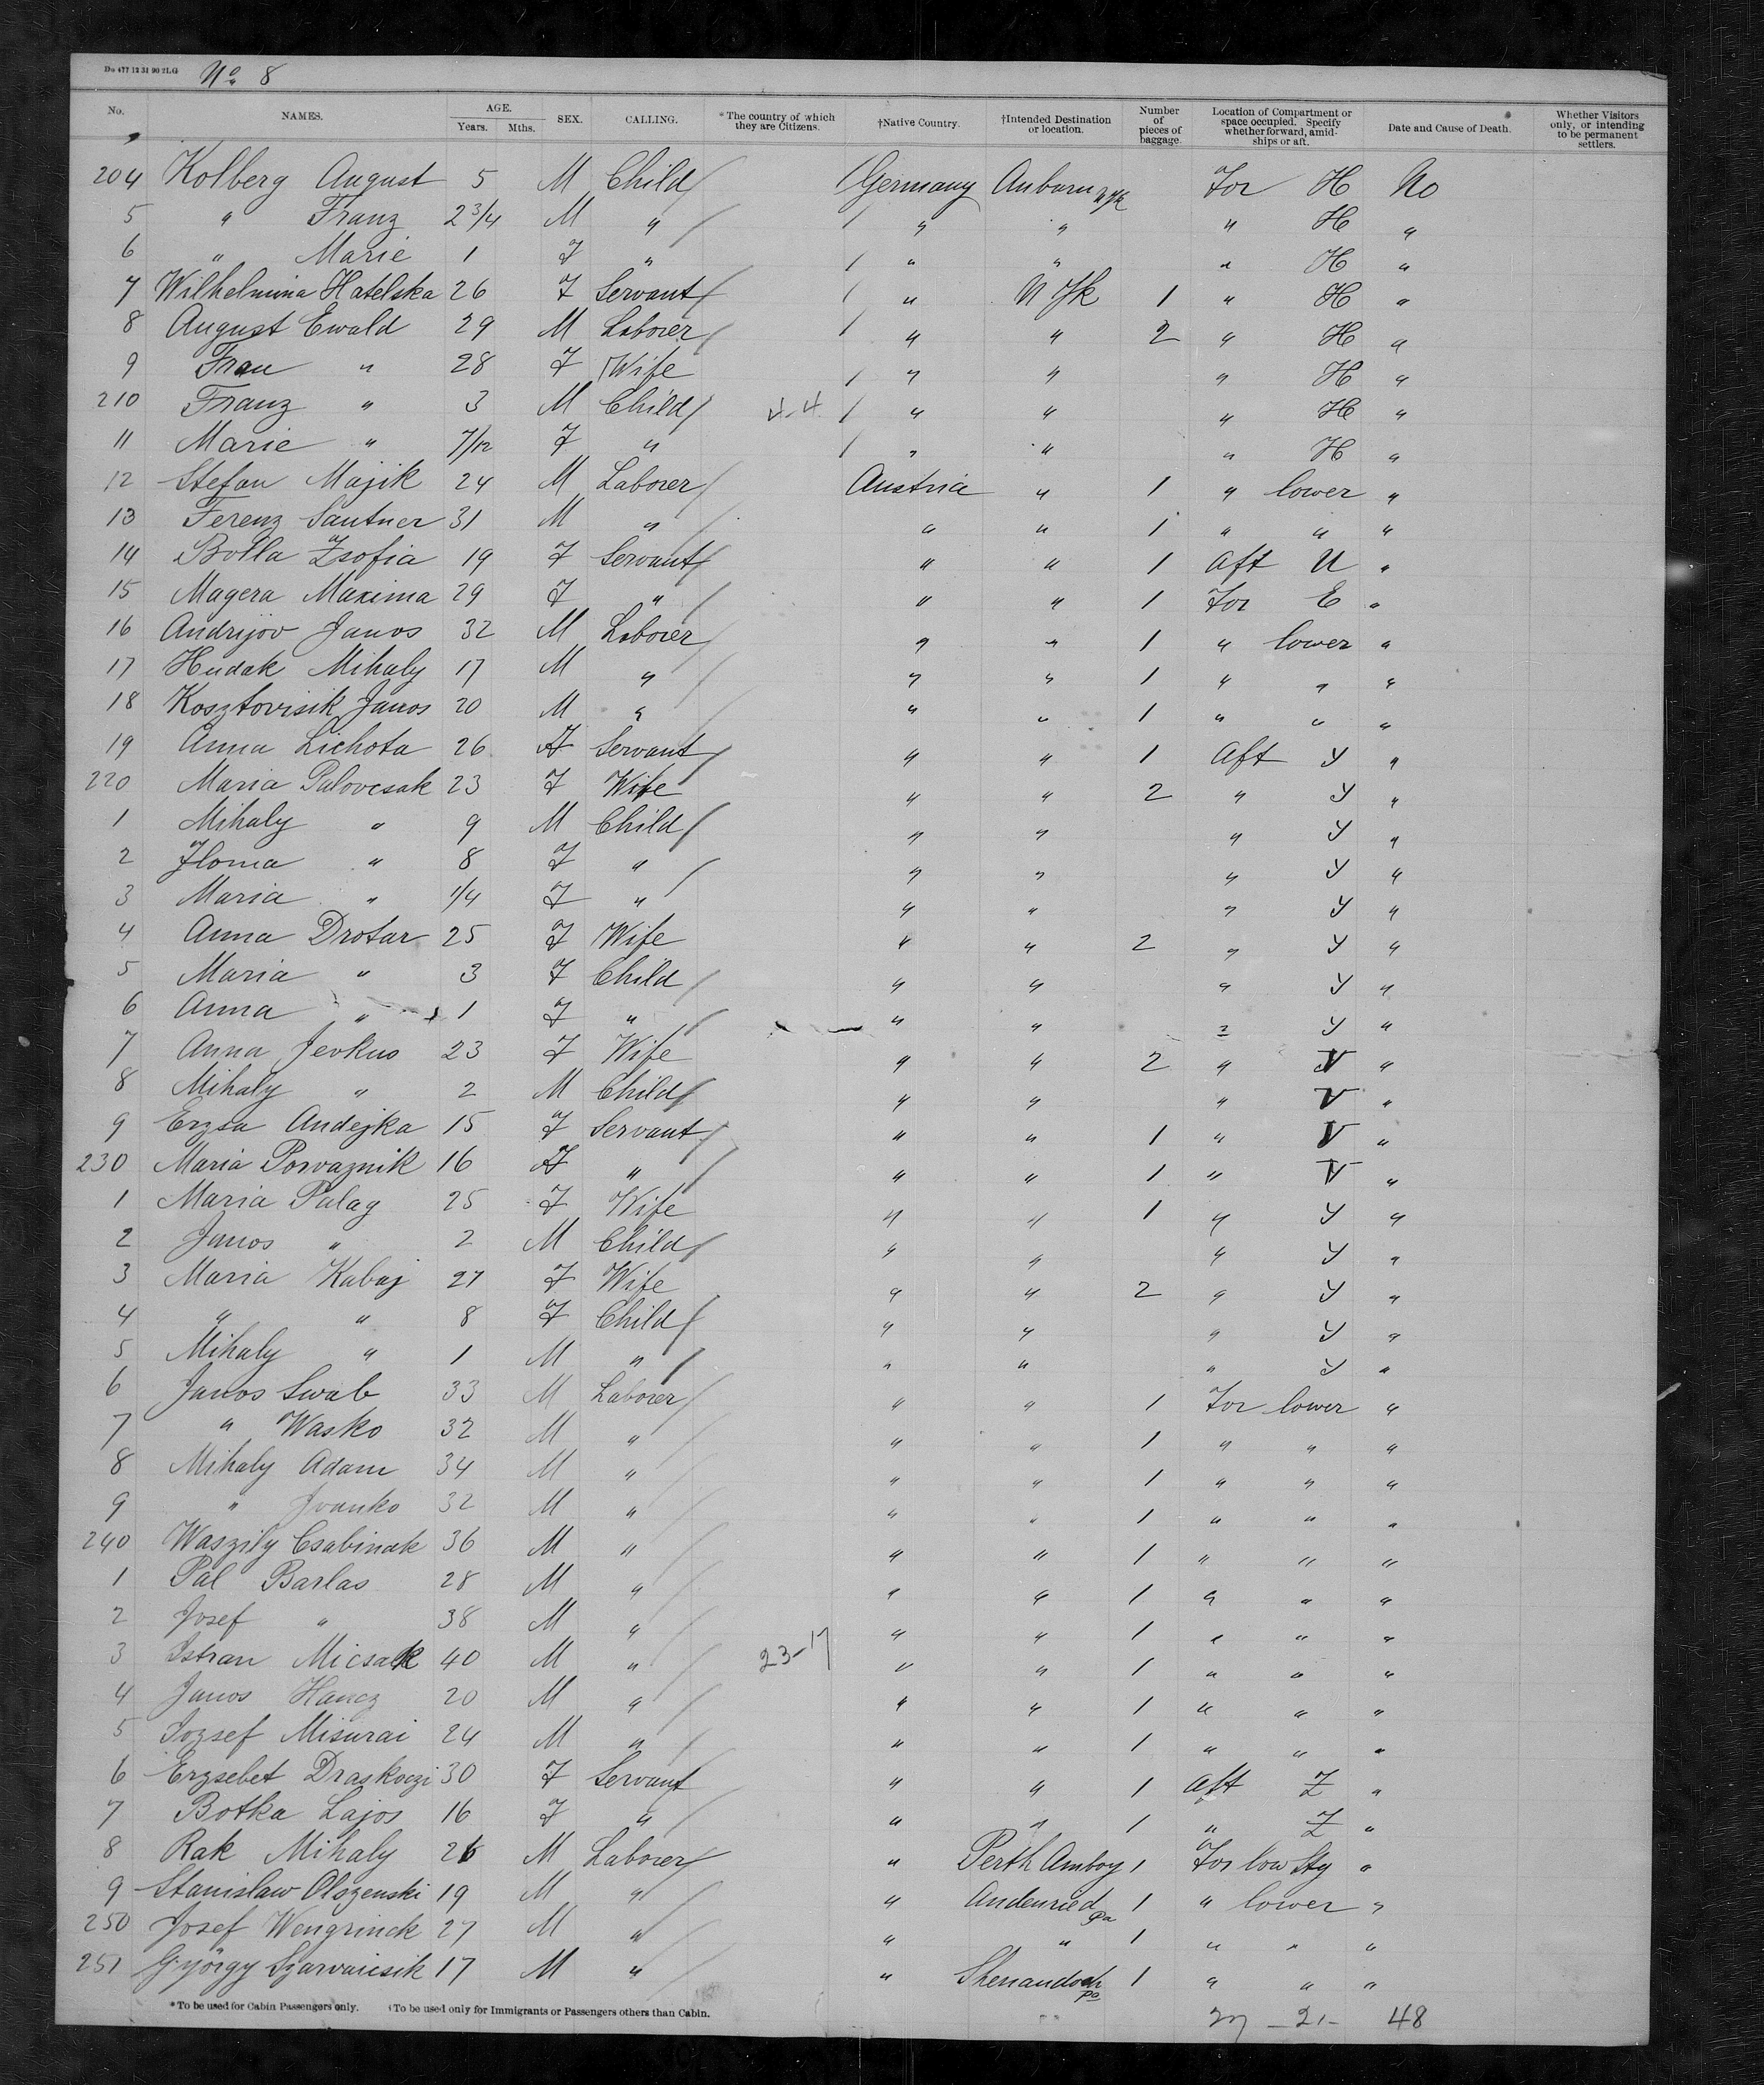 Do 477 12 31 90 2LG No 8
No. NAMES. AGE. Years. Mths. SEX. CALLING. *The country of which they are Citizens. †Native Country. †Intended Destination or location. Number of pieces of baggage. Location of Compartment or space occupied. Specify whether forward, amidships or aft. Date and Cause of Death. Whether Visitors only, or intending to be permanent settlers.
204 Kolberg August 5 M Child / Germany Auburn NYk For H No
5 " Franz 2 3/4 M " / " " " H "
6 " Marie 1 F " / " " " H "
7 Wilhelmina Hatelska 26 F Servant / " N Yk 1 " H "
8 August Ewald 29 M Laborer / " " 2 " H "
9 Frau " 28 F Wife / " " " H "
210 Franz " 3 M Child 4-4 / " " " H "
11 Marie " 7/12 F " / " " " H "
12 Stefan Majik 24 M Laborer Austria " 1 " lower "
13 Ferenz Santner 31 M " " " 1 " " "
14 Bolla Zsofia 19 F Servant " " 1 Aft U "
15 Magera Maxima 29 F " " " 1 For E "
16 Andrijov Janos 32 M Laborer " " 1 " lower "
17 Hudak Mihaly 17 M " " " 1 " " "
18 Kosztovisik Janos 20 M " " " 1 " " "
19 Anna Lichota 26 F Servant " " 1 Aft Y "
220 Maria Palovcsak 23 F Wife " " 2 " Y "
1 Mihaly " 9 M Child " " " Y "
2 Ilona " 8 F " " " " Y "
3 Maria " 1/4 F " " " " Y "
4 Anna Drotar 25 F Wife " " 2 " Y "
5 Maria " 3 F Child " " " Y "
6 Anna " 1 F " " " " Y "
7 Anna Jevkus 23 F Wife " " 2 " V "
8 Mihaly " 2 M Child " " " V "
9 Erzsa Andejka 15 F Servant " " 1 " V "
230 Maria Porvaznik 16 F " " " 1 " V "
1 Maria Palag 25 F Wife " " 1 " Y "
2 Janos " 2 M Child " " " Y "
3 Maria Kabaj 27 F Wife " " 2 " Y "
4 " " 8 F Child " " " Y "
5 Mihaly " 1 M " " " " Y "
6 Janos Swab 33 M Laborer " " 1 For lower "
7 " Wasko 32 M " " " 1 " " "
8 Mihaly Adam 34 M " " " 1 " " "
9 " Ivanko 32 M " " " 1 " " "
240 Waszily Csabinak 36 M " " " 1 " " "
1 Pal Barlas 28 M " " " 1 " " "
2 Josef " 38 M " " " 1 " " "
3 Istvan Micsak 40 M " 23-17 " " 1 " " "
4 Janos Hancz 20 M " " " 1 " " "
5 Jozsef Misurai 24 M " " " 1 " " "
6 Erzsebet Draskoczi 30 F Servant " " 1 Aft Z "
7 Botka Lajos 16 F " " " 1 " Z "
8 Rak Mihaly M Laborer " Perth Amboy 1 For low Stg "
9 Stanislaw Olszenski 19 M " " Audenried Pa 1 " lower "
250 Josef Wengrinek 27 M " " " 1 " " "
251 György Szarvaicsik 17 M " " Shenandoah Pa 1 " " "
*To be used for Cabin Passengers only. †To be used only for Immigrants or Passengers others than Cabin.
27 - 21 - 48